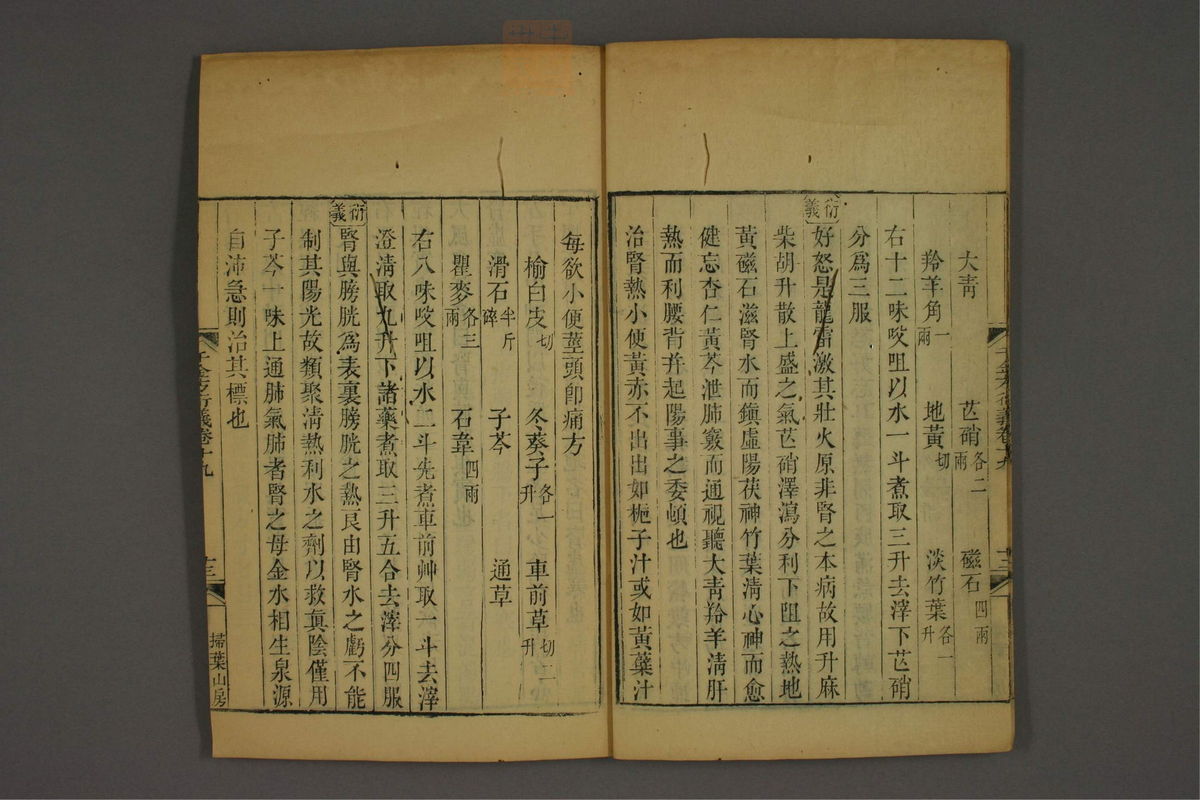 大青　芒硝各二兩　磁石四兩
羚羊角一兩　地黃切　淡竹葉各一升
右十二味㕮咀以水一斗煮取三升去滓下芒硝
分爲三服
衍義
好怒是龍雷激其壯火原非腎之本病故用升麻
柴胡升散上盛之氣芒硝澤瀉分利下阻之熱地
黃磁石滋腎水而鎭虛陽茯神竹葉淸心神而愈
健忘杏仁黃芩泄肺竅而通視聽大靑羚羊淸肝
熱而利腰背幷起陽事之委頓也
治腎熱小便黃赤不出出如梔子汁或如黃蘗汁
每欲小便莖頭卽痛方
榆白皮切　冬葵子各一升　車前草切二升
滑石半斤碎　子芩　通草
瞿麥各三兩　石韋四兩
右八味㕮咀以水二斗先煮車前艸取一斗去滓
澄淸取九升下諸藥煮取三升五合去滓分四服
衍義
腎與膀胱爲表裏膀胱之熱良由腎水之虧不能
制其陽光故類聚淸熱利水之劑以救眞陰僅用
子芩一味上通肺氣肺者腎之母金水相生泉源
自沛急則治其標也
千金方衍義卷十九
十三
掃葉山房